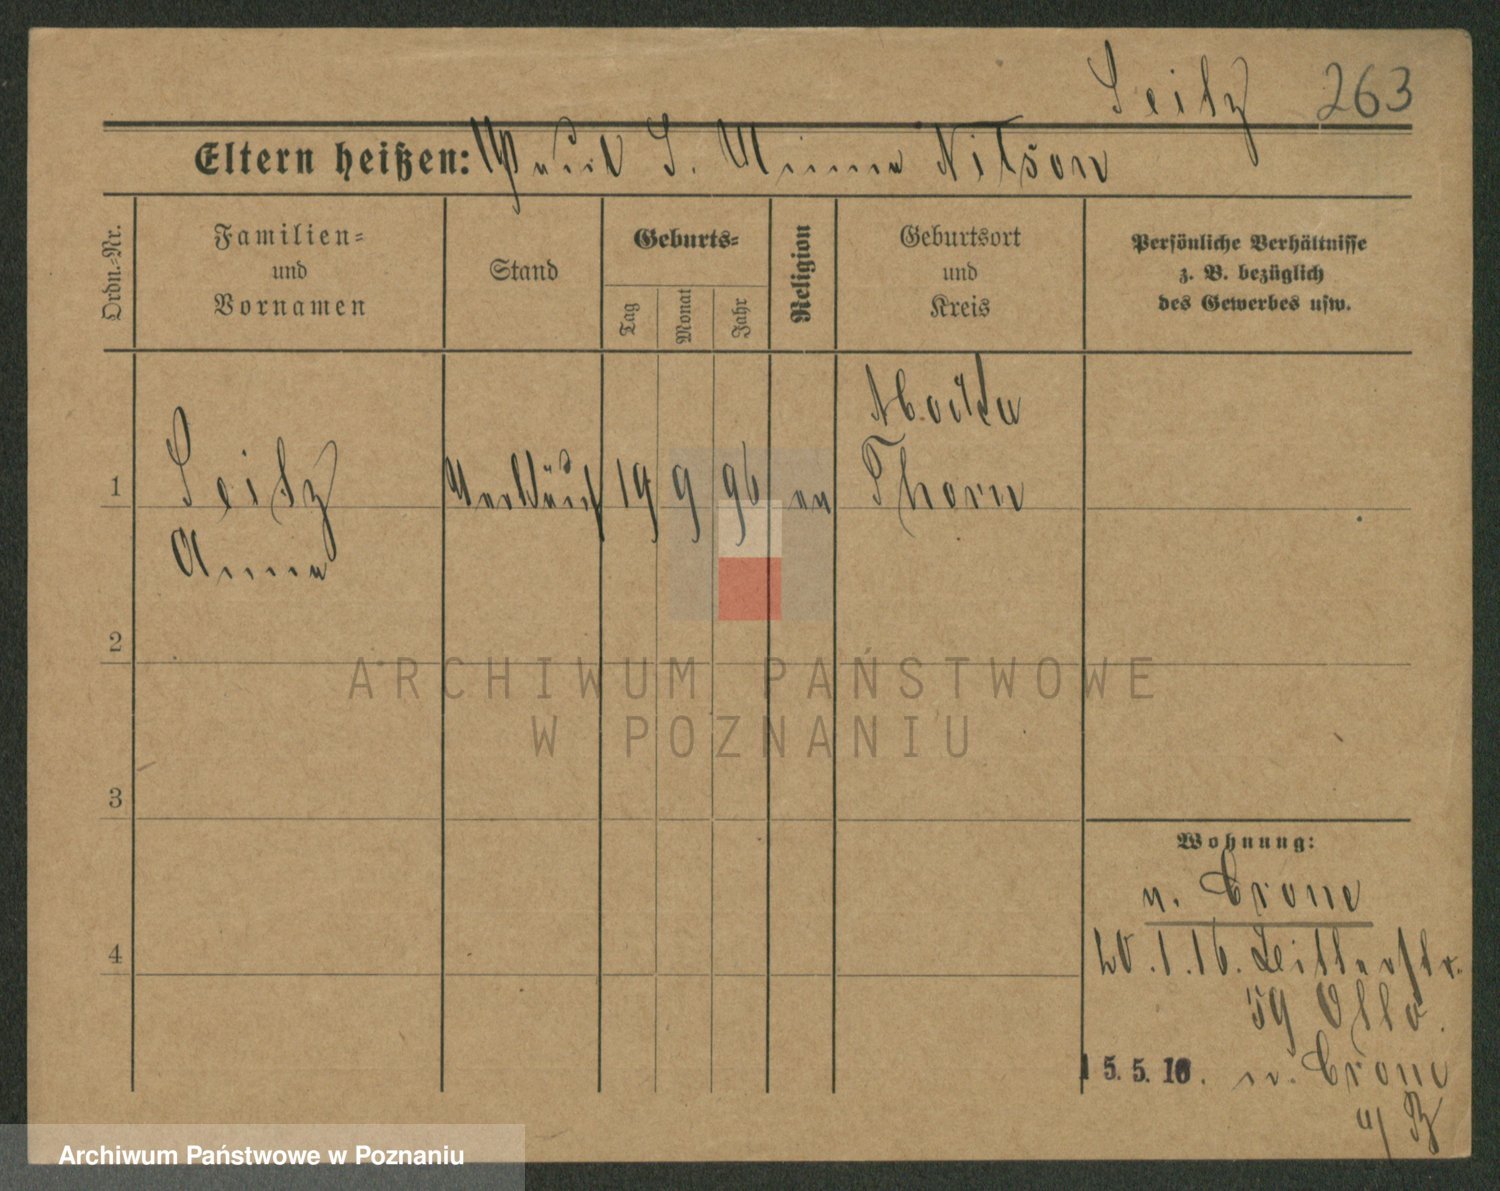 Seitz 263
Eltern heißen: Paul S. Minna Nitson
Ordn.-Nr.
Familien-
und
Vornamen
Stand
Geburts-
Tag
Monat
Jahr
Religion
Geburtsort
und
Kreis
Persönliche Verhältnisse
z. B. bezüglich
des Gewerbes usw.
1
Seitz
Anna
19 9 96 ev
Mocker
Thorn
2
ARCHIWUM PAŃSTWOWE
W POZNANIU
3
Wohnung:
n. Crone
20.1.16.
59 Otto
4
15.5.16. n. Crone
a/B
Archiwum Państwowe w Poznaniu